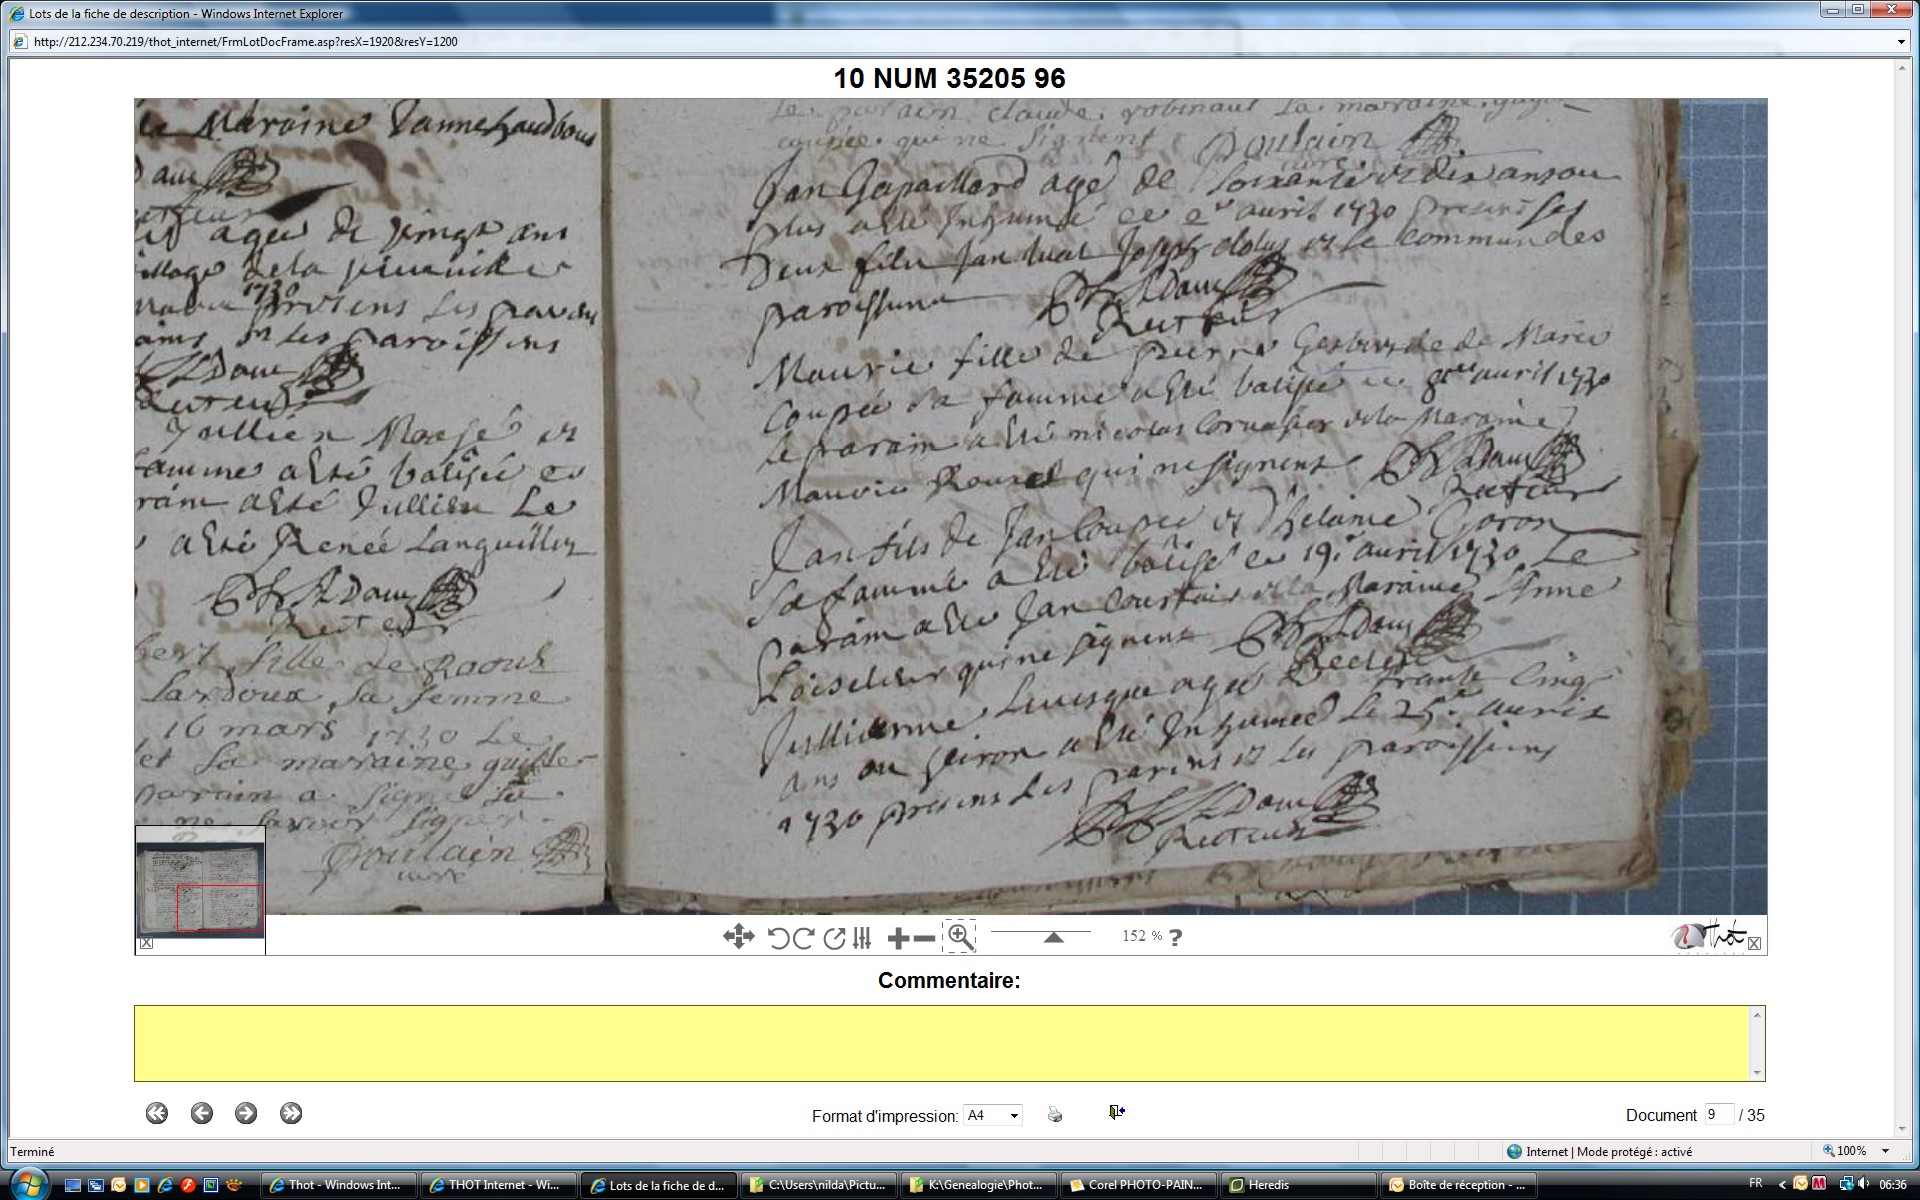 Lots de la fiche de description - Windows Internet Explorer
http://212.234.70.219/thot_internet/FrmLotDocFrame.asp?resX=1920&resY=1200
10 NUM 35205 96
Le Maraine Janne
agee de vingt ans
village de la
1730 presens Les
ains et Les paroissiens
Adam
Recteur
Jullien et
famme a Esté batisée ce
rain a Esté Jullien Le
a Esté Renée Languillez
Adam
Recteur
bert fille de Raoul
Lardoux, sa femme
16 mars 1730 Le
et La maraine guille-
parain a signé La
ne savoir signer
Poulain
curé
Le parain claude robinaut La maraine
coupée qui ne signent Poulain
curé
Jan Gapaillard agé de soixante et dix ans ou
plus a Esté Inhumé ce 2e avril 1730 presens ses
Deux fils Jan Joseph et le commun des
paroissiens Adam
Recteur
Mauricė fille de pierre de Marie
Coupée sa famme a Esté batisée ce avril 1730
Le parain a Esté nicolas et la Maraine
qui ne signent Adam
Recteur
Jan fils de Jan Coupée et d'helaine Goron
Sa famme a Esté batisé ce 19e avril 1730 Le
parain a Esté Jan et la Maraine Anne
Loiseleur qui ne signent Adam
Recteur
Jullienne Levesque agée de trante Cinq
ans ou a Esté Inhumée Le 25e avril
1730 presens Les parens et les paroissiens
Adam
Recteur
152 % ?
Thot
Commentaire:
Format d'impression: A4
Document 9 / 35
Terminé
Internet | Mode protégé : activé
100%
Thot - Windows Int...
THOT Internet - Wi...
Lots de la fiche de d...
C:\Users\nilda\Pictu...
K:\Genealogie\Phot...
Corel PHOTO-PAIN...
Heredis
Boîte de réception - ...
FR
06:36